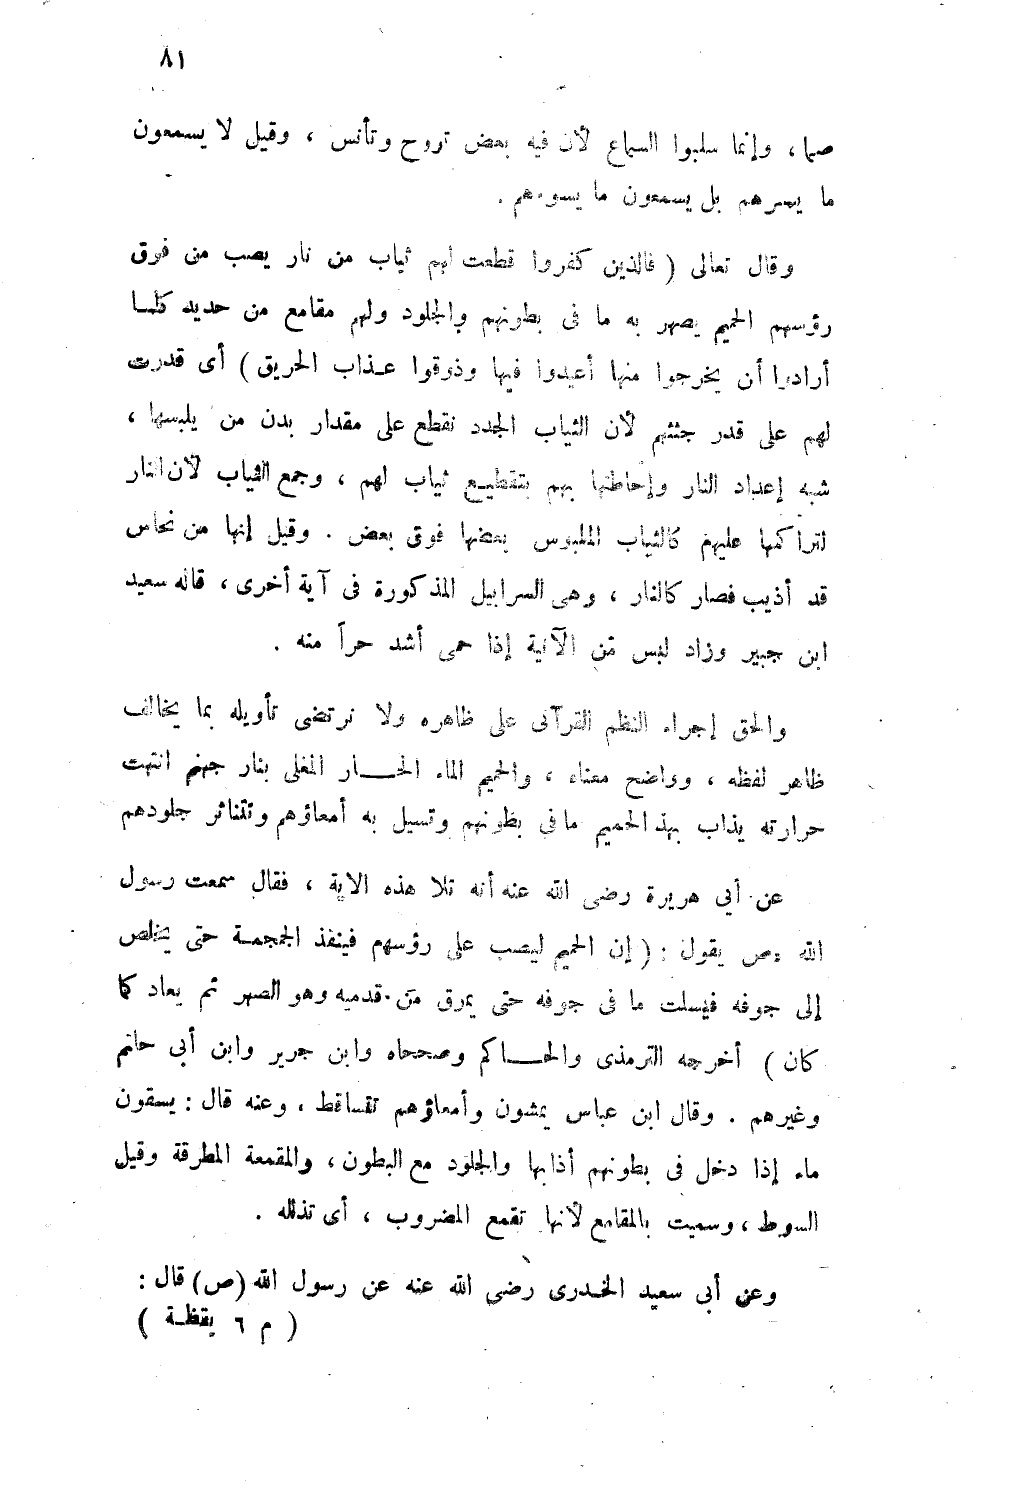 ٨١
صما ، وإنما سلبوا السماع لأن فيه بعض تروح وتأنس ، وقيل لا يسمعون
ما يسرهم بل يسمعون ما يسوءهم .
وقال تعالى ( فالذين كفروا قطعت لهم ثياب من نار يصب من فوق
رؤسهم الحميم يصهر به ما فى بطونهم والجلود ولهم مقامع من حديد كلما
أرادوا أن يخرجوا منها أعيدوا فيها وذوقوا عذاب الحريق ) أى قدرت
لهم على قدر جثثهم لأن الثياب الجدد تقطع على مقدار بدن من يلبسها ،
شبه إعداد النار وإحاطتها بهم بتقطيع ثياب لهم ، وجمع الثياب لأن النار
لتراكمها عليهم كالثياب الملبوس بعضها فوق بعض . وقيل إنها من نحاس
قد أذيب فصار كالنار ، وهى السرابيل المذكورة فى آية أخرى ، قاله سعيد
ابن جبير وزاد ليس من الآنية إذا حمى أشد حراً منه .
والحق إجراء النظم القرآنى على ظاهره ولا نرتضى تأويله بما يخالف
ظاهر لفظه ، وواضح معناه ، والحميم الماء الحار المغلى بنار جهنم انتهت
حرارته يذاب بهذ الحميم ما فى بطونهم وتسيل به أمعاؤهم وتتناثر جلودهم
عن أبي هريرة رضى الله عنه أنه تلا هذه الاية ، فقال سمعت رسول
الله ص يقول : ( إن الحميم ليصب على رؤسهم فينفذ الجمجمة حتى يخلص
إلى جوفه فيسلت ما فى جوفه حتى يمرق من قدميه وهو الصهر ثم يعاد كما
كان ) أخرجه الترمذى والحاكم وصححاه وابن جرير وابن أبى حاتم
وغيرهم . وقال ابن عباس يمشون وأمعاؤهم تتساقط ، وعنه قال : يسقون
ماء إذا دخل فى بطونهم أذابها والجلود مع البطون ، والمقمعة المطرقة وقيل
السوط ، وسميت بالمقامع لأنها تقمع المضروب ، أى تذلله .
وعن أبى سعيد الخدرى رضى الله عنه عن رسول الله (ص) قال :
( م ٦ يقظة )